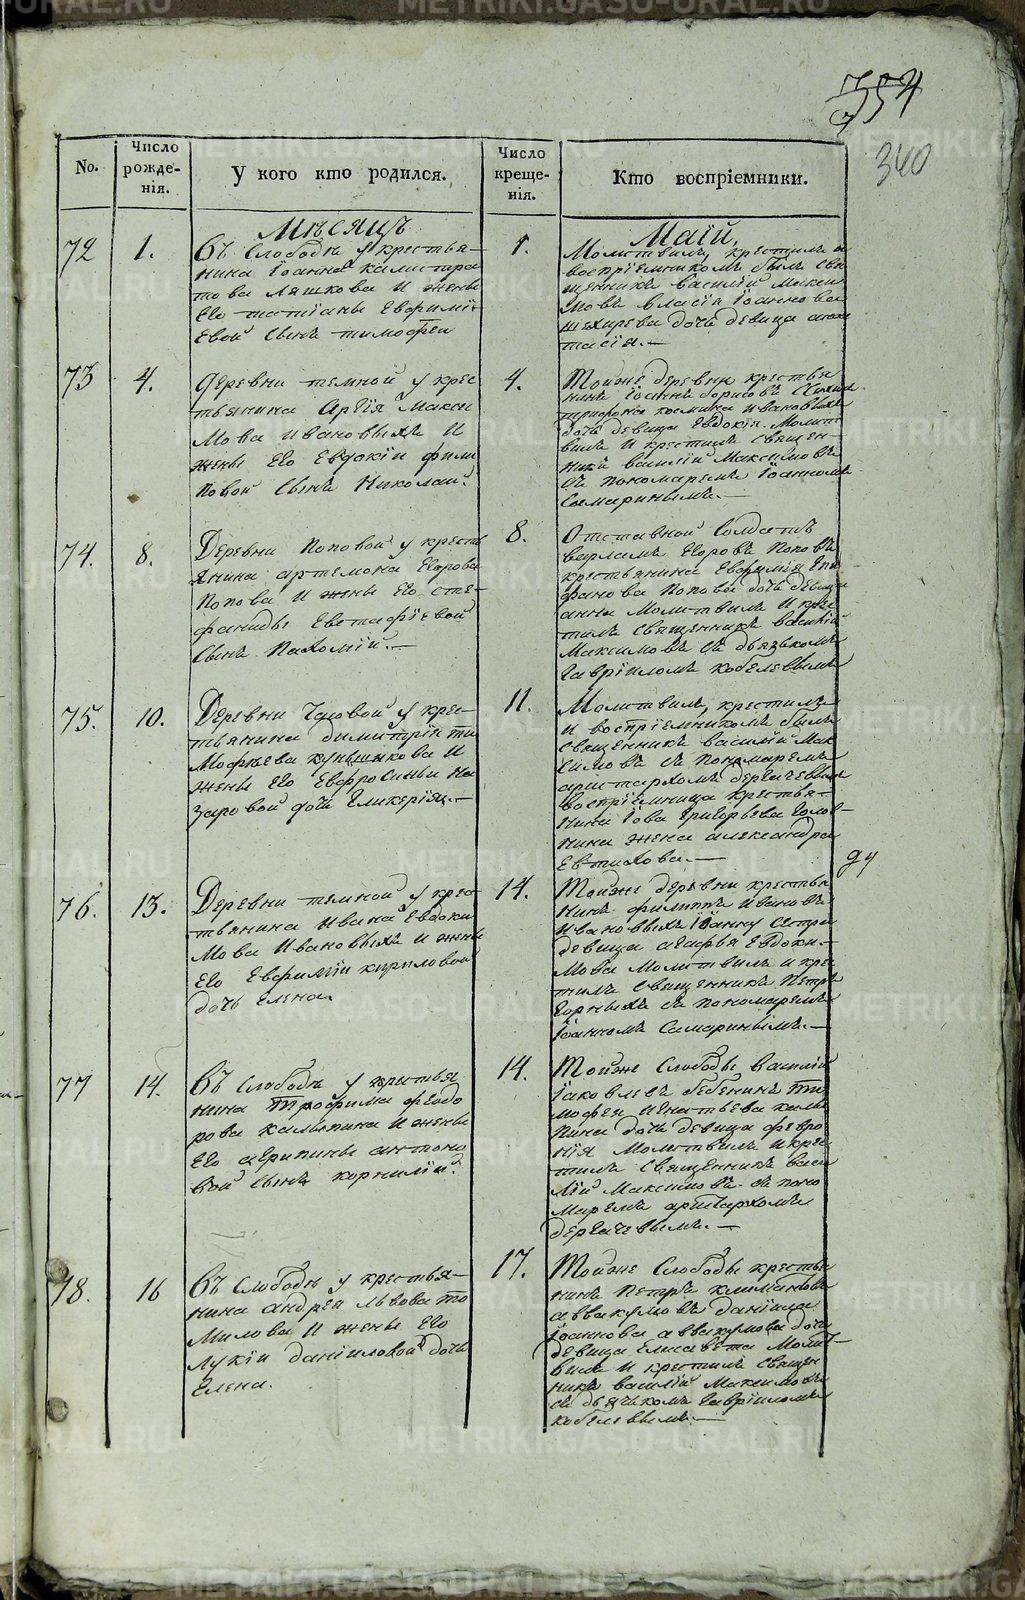 354
340
No.
Число рожде-нія.
У кого кто родился.
Число креще-нія.
Кто воспріемники.
Мѣсяцъ
Маій,
72
1.
Въ Слободѣ у крестья-
нина Іоанна Калистра
това Ляшкова и жены
Его татіаны Евфиміе
Евой Сынъ тимофей
1.
Молитвилъ, крестилъ и
воспріемникомъ былъ Свя
щенникъ Василій Макси
мовъ Власія Іоаннова
дочь девица анас
тасія.—
73
4.
Деревни темной у крес
тьянина Сергія Макси
мова ивановыхъ и
жены Его Евдокіи фили
повой Сынъ Николай.
4.
Тойже деревни крестья
нинъ Іоаннъ борисовъ
трифона космина ивановыхъ
дочь девица Евдокія. Молит
вилъ и крестилъ Священ-
никъ Василій Максимовъ
съ пономаремъ Іоанномъ
Самаринымъ.—
74.
8.
Деревни Поповой у кресть
янина артемона Егорова
Попова и жены Его сте-
фаниды Евстафіевой
Сынъ Пахомій.—
8.
Отставной Солдатъ
варламъ Егоровъ Поповъ
крестьянина Евфимія Епи
фанова Попова дочь девица
анна Молитвилъ и крес
тилъ Священникъ Василій
Максимовъ съ дьячькомъ
Гавріиломъ кобелевымъ
75.
10.
Деревни Чуовой у крес-
тьянина димитрія ти
мофѣева куньшикова и
жены Его Евфросиньи На
заровой дочь Гликерія.—
11.
Молитвилъ, крестилъ
и воспріемникомъ былъ
Священникъ василій Мак
симовъ съ пономаремъ
аристархомъ дергачевымъ
воспріемница крестья-
нина Іова Григорьева Голов-
нина жена александра
Евтихова.—
ду
76.
13.
Деревни темной у крес-
тьянина Ивана Евдоки
мова Ивановыхъ и жены
Его Евфиміи кириловой
дочь Елена.
14.
Тойже деревни крестья
нинъ филиппъ Ивановъ
Ивановыхъ Іоанну Сестра
девица агафья Евдоки-
мова Молитвилъ и крес
тилъ Священникъ Петръ
Горныхъ съ пономаремъ
Іоанномъ Самаринымъ.—
77
14.
Въ Слободѣ у кристья
нина Трофима феодо
рова калыпина и жены
Его агрипины антоно
вой Сынъ корнилій.
14.
Тойже Слободы Василій
Іаковлевъ бебенинъ ти
мофея игнатьева калы
пина дочь девица февро
нія Молитвилъ и крес
тилъ Священникъ Васи
лій Максимовъ съ поно
маремъ аристархомъ
дергачевымъ.—
78.
16
Въ Слободѣ у крестья-
нина андрея Львова то
милова и жены Его
Лукіи даніиловой дочь
Елена.
17.
Тойже Слободы крестья
нинъ Петръ климантовъ
аввакумовъ даніила
Іоаннова аввакумова дочь
девица Елисавета Молит-
вилъ и крестилъ Священ
никъ василій Максимовъ
съ дьячькомъ Гавріиломъ
кобелевымъ.—
METRIKI.GASO-URAL.RU